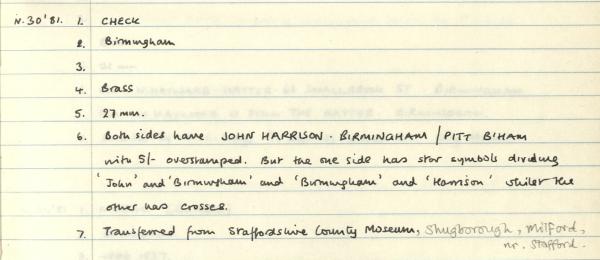 N.30'81. 1. CHECK
2. Birmingham
3.
4. Brass
5. 27 mm.
6. Both sides have JOHN HARRISON · BIRMINGHAM / PITT B'HAM
with 5/- overstamped. But the one side has star symbols dividing
'John' and 'Birmingham' and 'Birmingham' and 'Harrison' whilst the
other has crosses.
7. Transferred from Staffordshire County Museum, Shugborough, Milford,
nr. Stafford.